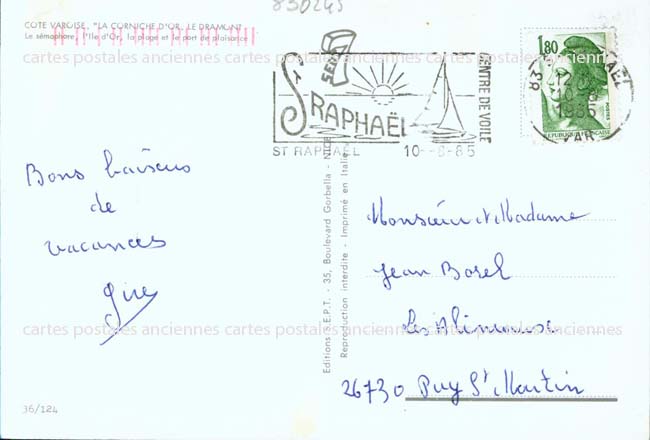 850245
COTE VAROISE. "LA CORNICHE D'OR. LE DRAMONT
Le sémaphore, l'Ile d'Or, la plage et le port de plaisance
cartes postales anciennes cartes postales anciennes cartes postales anciennes
ST RAPHAËL
CENTRE DE VOILE
ST RAPHAEL 10-8-85
1,80
REPUBLIQUE FRANÇAISE
POSTES
VAR
Bons baisers
de
vacances
Monsieur et Madame
Jean Borel
Les
26730 Puy St Martin
Editions S.E.P.T. - 35, Boulevard Gorbella - NICE
Reproduction interdite - Imprimé en Italie
cartes postales anciennes cartes postales anciennes cartes postales anciennes
36/124